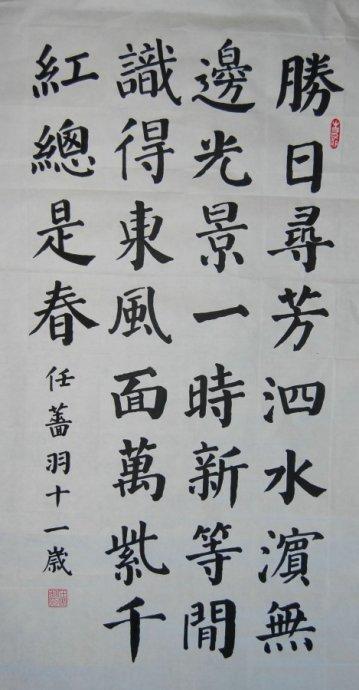 勝日尋芳泗水濵無
邊光景一時新等閒
識得東風面萬紫千
紅總是春
任薔羽十一歲